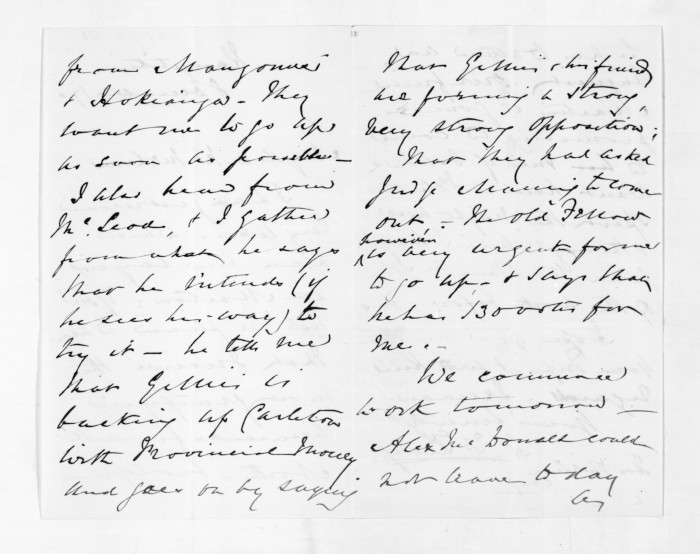 from Mangonui
& Hokianga - They
want me to go up
as soon as possible -
I also hear from
Mc. Leod, & I gather
from what he says
that he intends (if
he sees his way) to
try it - he tells me
that Gillies is
backing up Carleton
with Provincial Money
and goes on by saying
that Gillies & his friends
are forming a strong,
very strong opposition;
That they had asked
Judge Maning to come
out. - The old Fellow
however
is very urgent for me
to go up - & says that
he has 130 votes for
me. -
We commence
work tomorrow -
Alex Mc Donald could
not leave to day
as